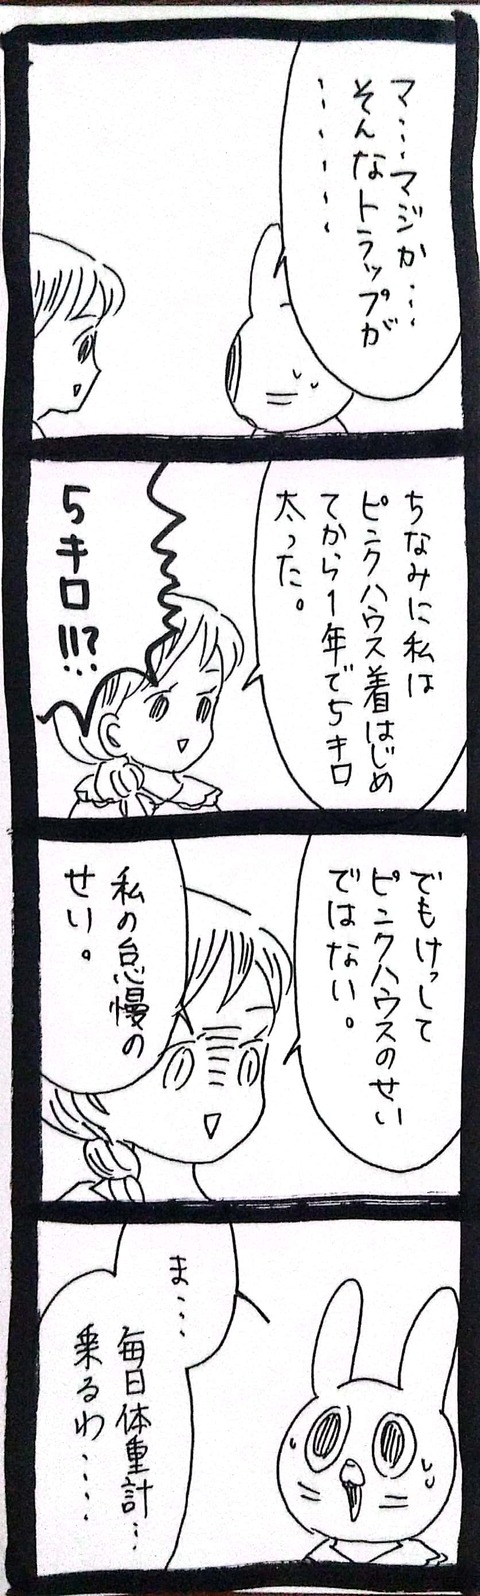 マ…マジか…
そんなトラップが
……
ちなみに私は
ピンクハウス着はじめ
てから1年で5キロ
太った。
5キロ!!?
でもけっして
ピンクハウスのせい
ではない。
私の怠慢の
せい。
ま…
毎日体重計…
乗るわ……